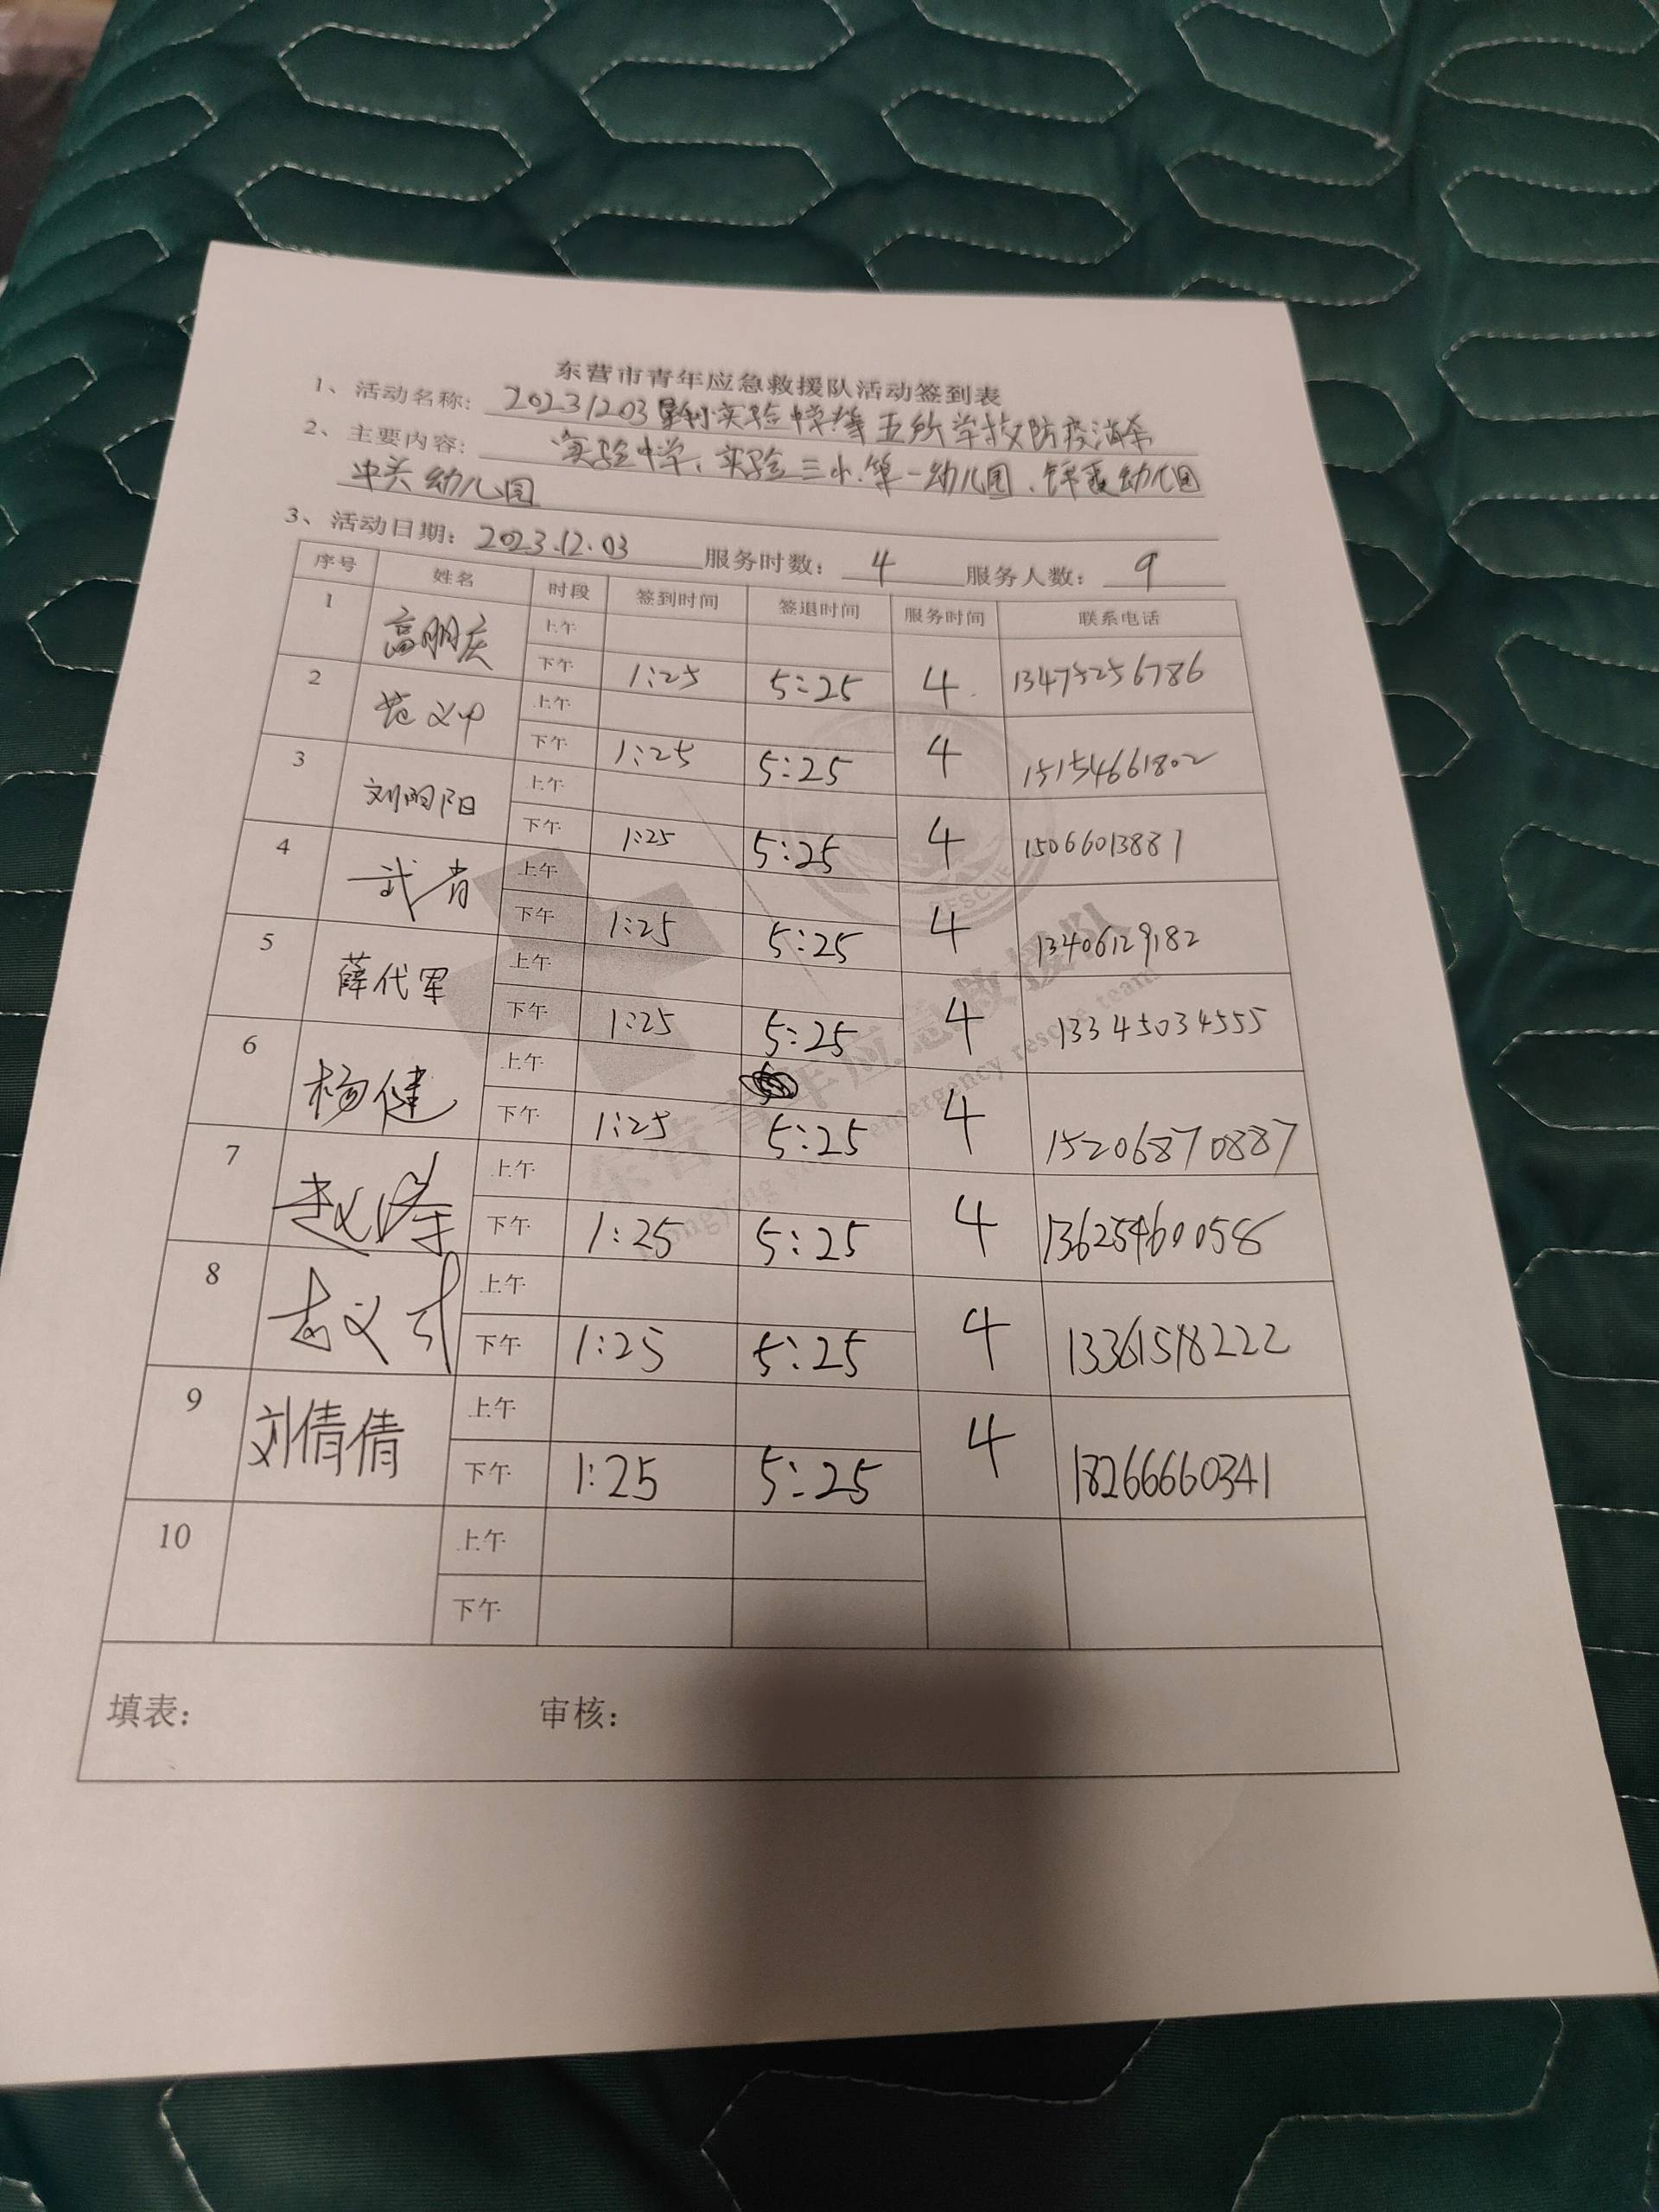 东营市青年应急救援队活动签到表
1、活动名称: 20231203垦利实验中学等五所学校防疫消杀
2、主要内容: 实验中学、实验三小、第一幼儿园、锦霞幼儿园
中关幼儿园
3、活动日期: 2023.12.03 服务时数: 4 服务人数: 9
序号 姓名 时段 签到时间 签退时间 服务时间 联系电话
1 高朋庆 上午
下午 1:25 5:25 4 13475256786
2 范义中 上午
下午 1:25 5:25 4 15154661802
3 刘明阳 上午
下午 1:25 5:25 4 15066013887
4 武青 上午
下午 1:25 5:25 4 13406129182
5 薛代军 上午
下午 1:25 5:25 4 13345034555
6 杨健 上午
下午 1:25 5:25 4 15206870887
7 赵峰 上午
下午 1:25 5:25 4 13625460058
8 上午
下午 1:25 5:25 4 13361518222
9 刘倩倩 上午
下午 1:25 5:25 4 18266660341
10 上午
下午
填表: 审核:
东营青年应急救援队
Dongying youth emergency rescue team
RESCUE